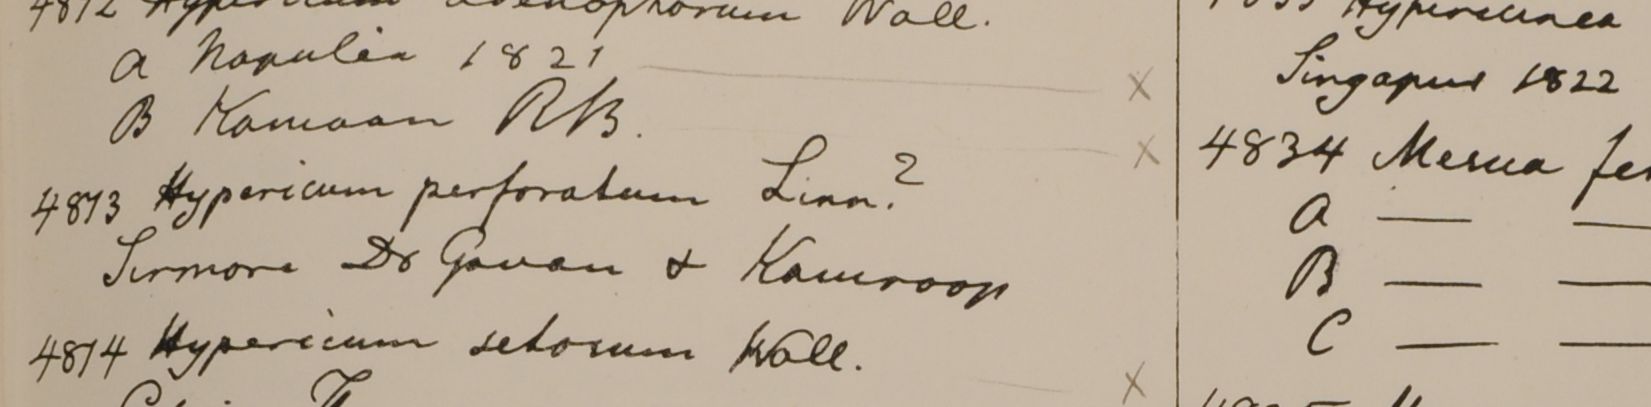 4812 Hypericum adenophorum Wall.
a Napulia 1821
B Kamaon RB.
4813 Hypericum perforatum Linn.?
Sirmore Dr Govan & Kamroop
4814 Hypericum setosum Wall.
Hypericinea
Singapur 1822
4834 Mesua
a — —
B — —
C — —